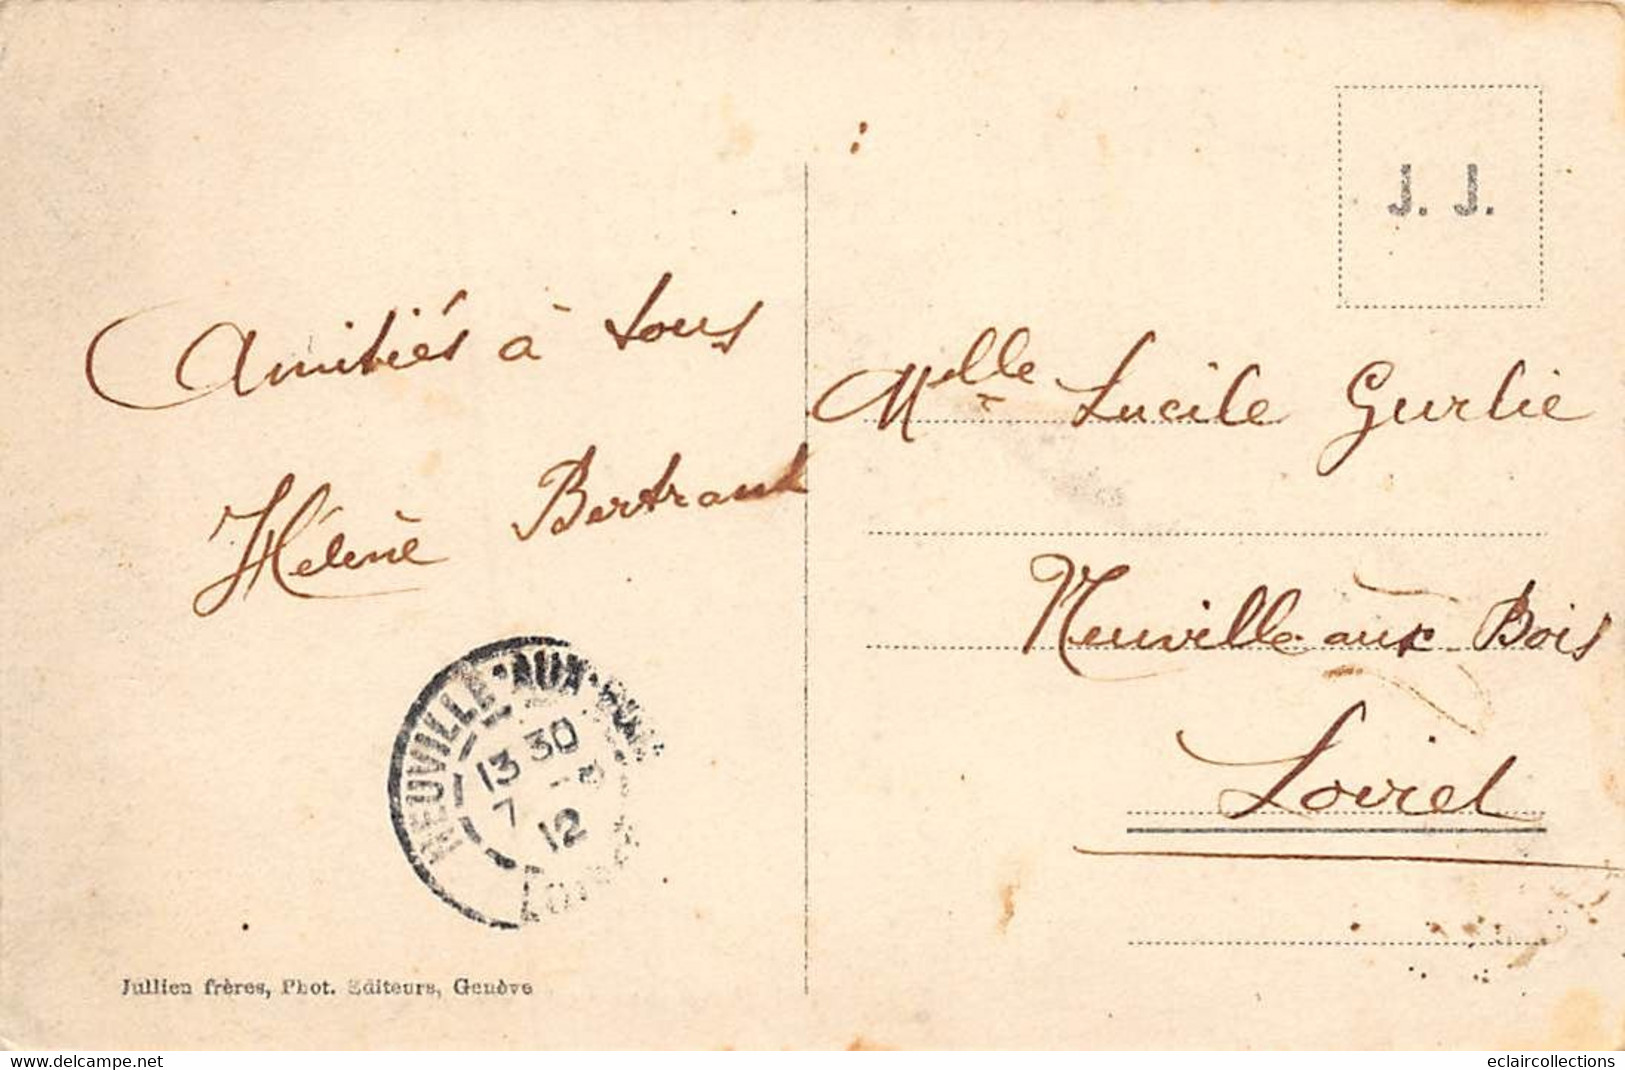 J. J.
Amitiés à tous
Hélène Bertrand
Melle Lucile Gurlie
Neuville aux Bois
Loiret
NEUVILLE-AUX-BOIS
13 30
7
12
LOIRET
Jullien frères, Phot. Editeurs, Genève
www.delcampe.net
eclaircollections